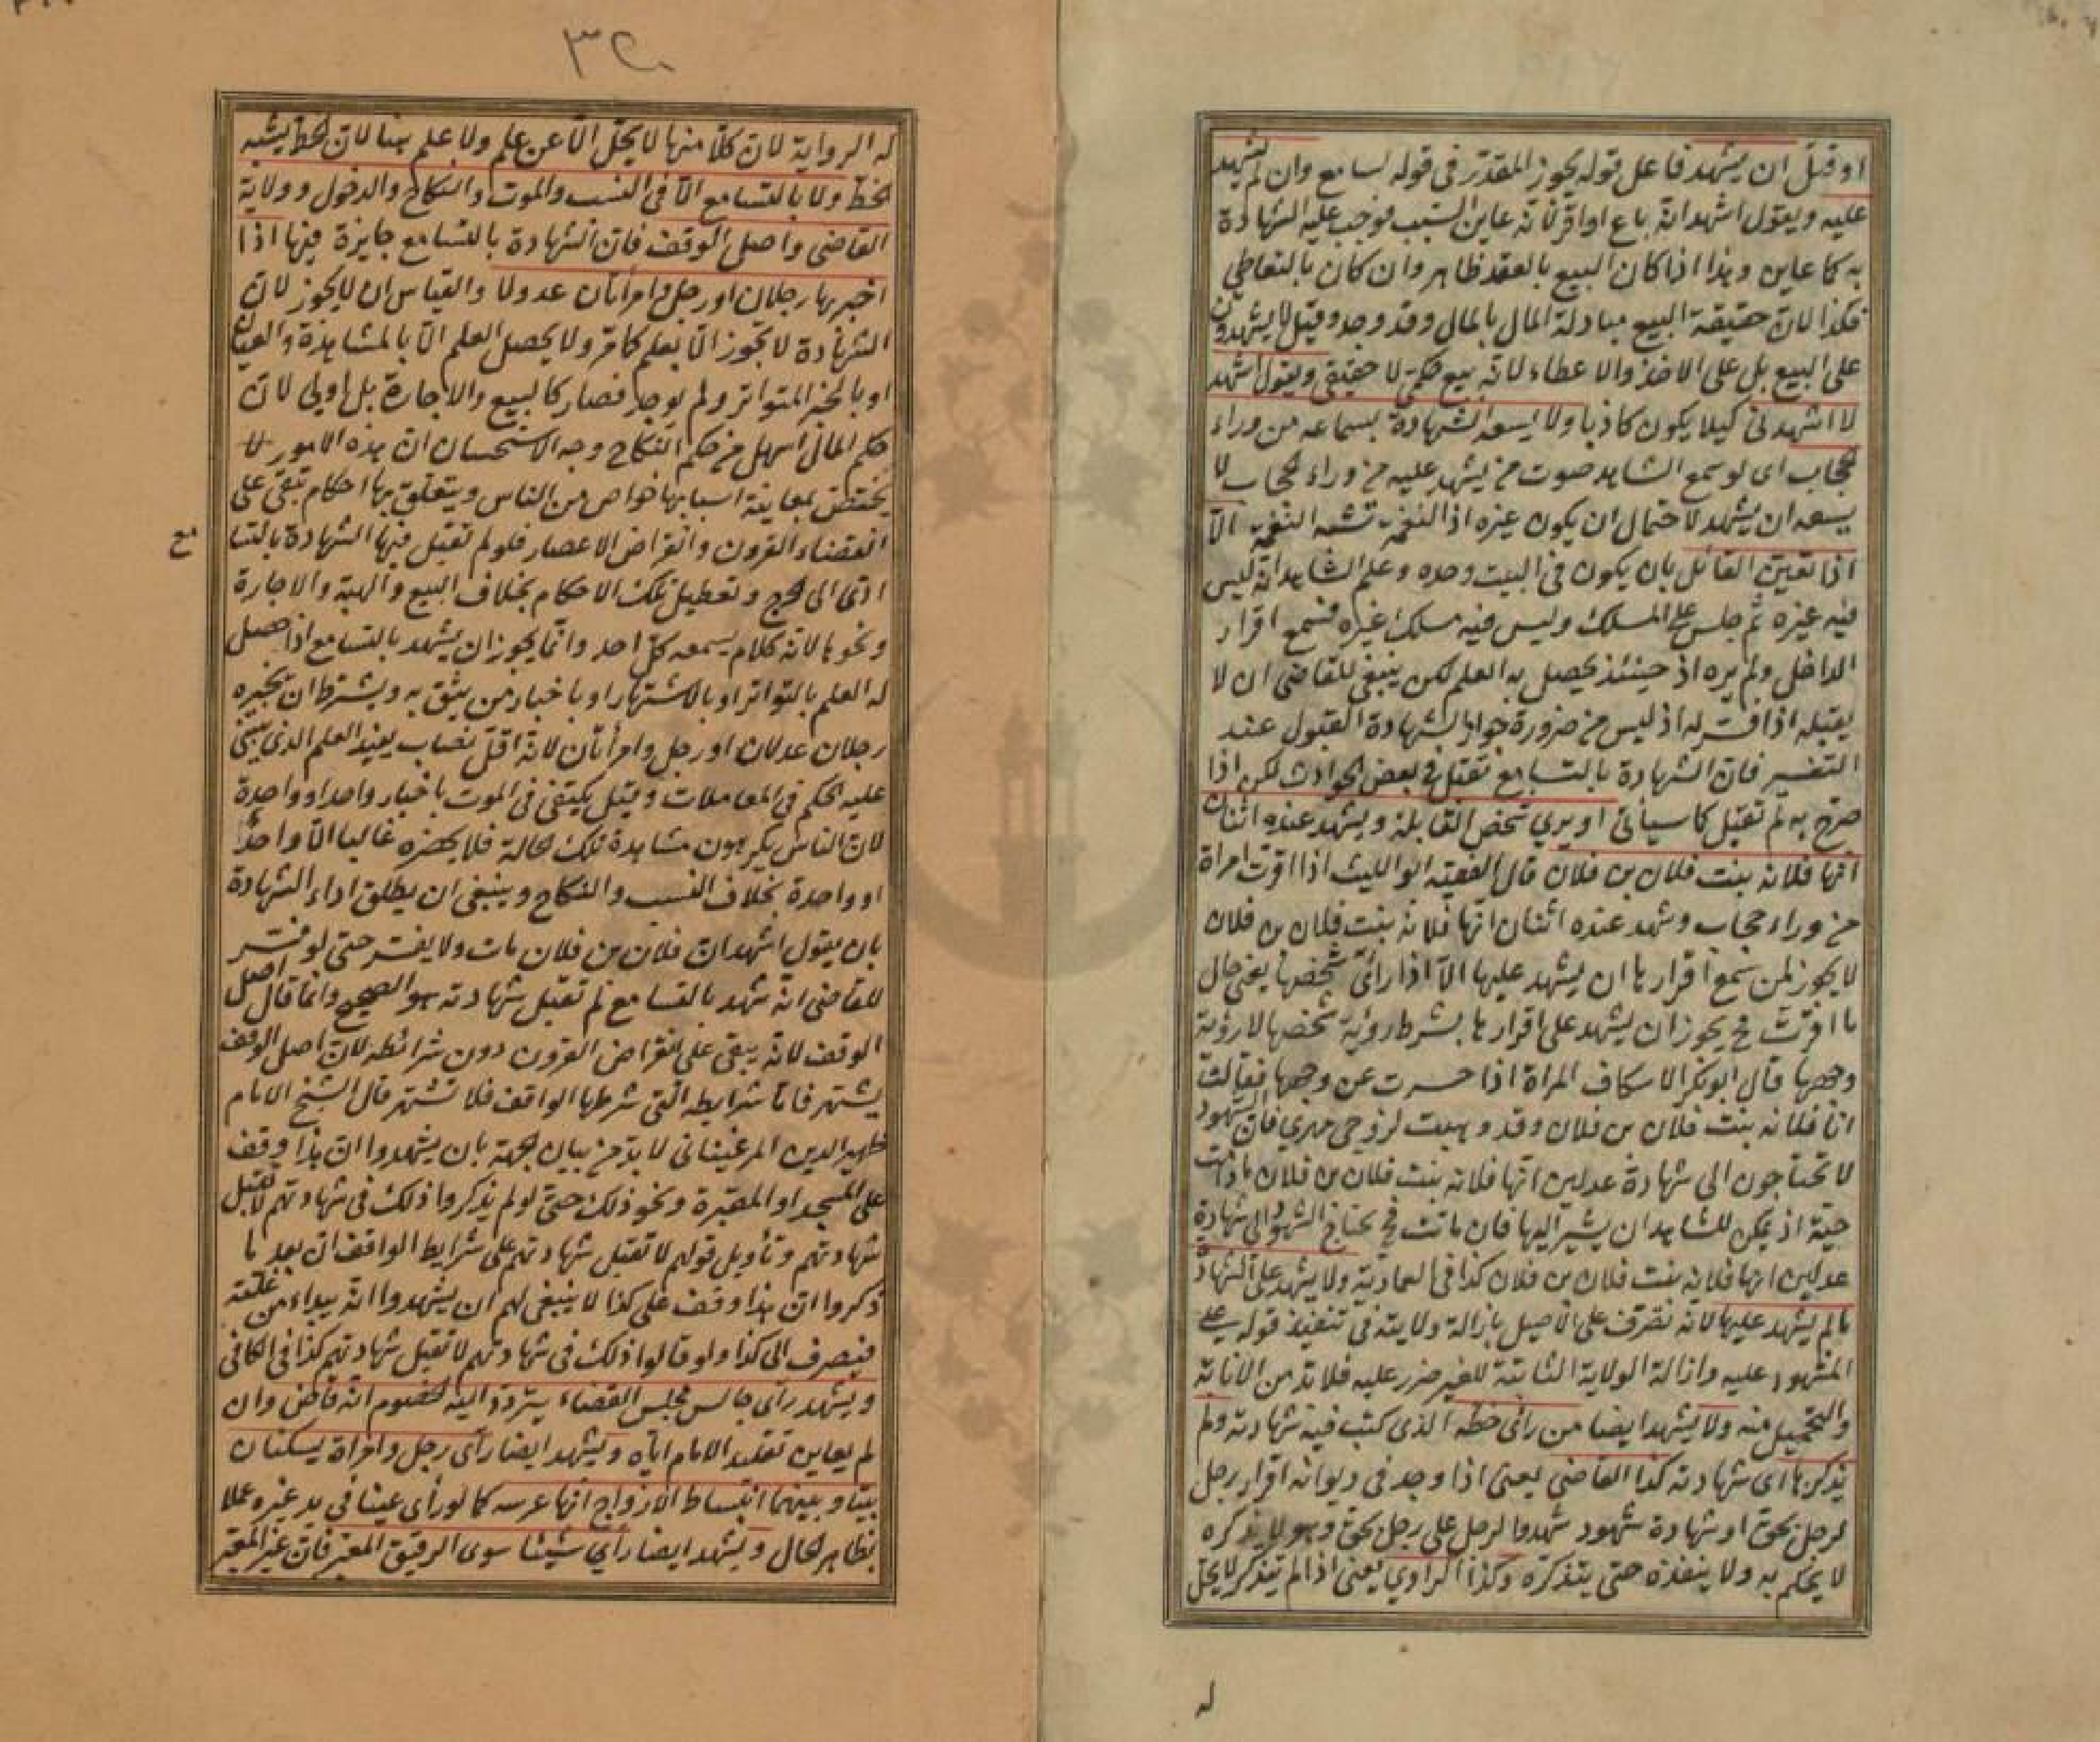 او قتل ان يشهد فاعل قوله يجوز المقدر في قوله لسامع وان لم يشهد
عليه ويقول اشهد انه باع او اقر لانه عاين السبب فوجب عليه الشهادة
به كما عاين وهذا اذا كان البيع بالعقد ظاهر وان كان بالتعاطي
فكذا لان حقيقة البيع مبادلة المال بالمال وقد وجد وقيل لا يشهدون
على البيع بل على الاخذ والاعطاء لانه بيع حكمي لا حقيقي ويقول اشهد
لا اشهدني كيلا يكون كاذبا ولا يسعه الشهادة بسماعه من وراء
الحجاب اى لو سمع الشاهد صوت من يشهد عليه من وراء الحجاب لا
يسعه ان يشهد لاحتمال ان يكون غيره اذ النغمة تشبه النغمة الا
اذا تعين القائل بان يكون في البيت وحده وعلم الشاهد انه ليس
فيه غيره ثم جلس على المسلك وليس فيه مسلك غيره فسمع اقرار
الداخل ولم يره اذ حينئذ يحصل به العلم لكن ينبغي للقاضي ان لا
يقبله اذا فسر له اذ ليس من ضرورة جواز الشهادة القبول عند
التفسير فان الشهادة بالتسامع تقبل في بعض الحوادث لكن اذا
صرح به لم تقبل كما سيأتي او يرى شخص القايلة ويشهد عنده اثنان
انها فلانه بنت فلان بن فلان قال الفقيه ابو الليث اذا اقرت امراة
من وراء حجاب وشهد عنده اثنان انها فلانه بنت فلان بن فلان
لا يجوز لمن سمع اقرارها ان يشهد عليها الا اذا رائ شخصها يعني حال
ما اقرت فح يجوز ان يشهد على اقرارها بشرط رؤية شخصها لا رؤية
وجهها قال ابو بكر الاسكاف المراة اذا حسرت عن وجهها فقالت
انا فلانه بنت فلان بن فلان وقد وهبت لزوجي مهري فان الشهود
لا تحتاجون الى شهادة عدلين انها فلانه بنت فلان بن فلان ما دامت
حية اذ يمكن للشاهد ان يشير اليها فان ماتت فح يحتاج الشهود الى شهادة
عدلين انها فلانه بنت فلان بن فلان كذا في العمادية ولا يشهد على الشهادة
ما لم يشهد عليها لانه تصرف على الاصيل بازالة ولايته في تنفيذ قوله على
المشهود عليه وازالة الولاية الثابتة للغير ضرر عليه فلا بد من الانابة
والتحميل منه ولا يشهد ايضا من رائ خطه الذى كتب فيه شهادته ولم
يذكرها اى شهادته كذا القاضي يعني اذا وجد في ديوانه اقرار رجل
لرجل بحق او شهادة شهود شهدوا لرجل على رجل بحق وهو لا يذكره
لا يحكم به ولا ينفذه حتى يتذكره وكذا الراوي يعني اذا لم يتذكر لا يحل
له
٣٢٠
له الرواية لان كلا منها لا يحل الا عن علم ولا علم هنا لان الخط يشبه
الخط ولا بالتسامع الا في النسب والموت والنكاح والدخول وولاية
القاضي واصل الوقف فان الشهادة بالتسامع جايزة فيها اذا
اخبر بها رجلان او رجل وامراتان عدولا والقياس ان لا يجوز لان
الشهادة لا تجوز الا بعلم كما مر ولا يحصل العلم الا بالمشاهدة والعيان
او بالخبر المتواتر ولم يوجد فصار كالبيع والاجارة بل اولى لان
حكم المال اسهل من حكم النكاح وجه الاستحسان ان هذه الامور لا
يختص بمعاينة اسبابها خواص من الناس ويتعلق بها احكام تبقى على
انقضاء القرون وانقراض الاعصار فلو لم تقبل فيها الشهادة بالتسا
مع
ادى الى الحرج وتعطيل تلك الاحكام بخلاف البيع والهبة والاجارة
ونحوها لانه كلام يسمعه كل احد وانما يجوز ان يشهد بالتسامع اذا حصل
له العلم بالتواتر او بالاشتهار او باخبار من يثق به ويشترط ان يخبره
رجلان عدلان او رجل وامرأتان لانه اقل نصاب يفيد العلم الذى يبتني
عليه الحكم في المعاملات وقيل يكتفى في الموت باخبار واحد او واحدة
لان الناس يكرهون مشاهدة تلك الحالة فلا يحضره غالبا الا واحد
او واحدة بخلاف النسب والنكاح وينبغي ان يطلق اداء الشهادة
بان يقول اشهد ان فلان بن فلان مات ولا يفسر حتى لو فسر
للقاضي انه شهد بالتسامع لم تقبل شهادته هو الصحيح وانما قال اصل
الوقف لانه يبقى على انقراض القرون دون شرائطه لان اصل الوقف
يشتهر فاما شرايطه التي شرطها الواقف فلا تشتهر قال الشيخ الامام
ظهير الدين المرغيناني لا بد من بيان الجهة بان يشهدوا ان هذا وقف
على المسجد او المقبرة ونحو ذلك حتى لو لم يذكروا ذلك في شهادتهم لا تقبل
شهادتهم وتأويل قولهم لا تقبل شهادتهم على شرايط الواقف ان بعد ما
ذكروا ان هذا وقف على كذا لا ينبغي لهم ان يشهدوا انه يبداء من غلته
فيصرف الى كذا ولو قالوا ذلك في شهادتهم لا تقبل شهادتهم كذا في الكافي
ويشهد رأى جالس مجلس القضاء يتردد اليه الخصوم انه قاض وان
لم يعاين تقليد الامام اياه ويشهد ايضا رأى رجل وامراة يسكنان
بيتا وبينهما انبساط الازواج انها عرسه كما لو رأى عينا في يد غيره عملا
بظاهر الحال ويشهد ايضا رأى شيئا سوى الرقيق المعبر فان غير المعبر